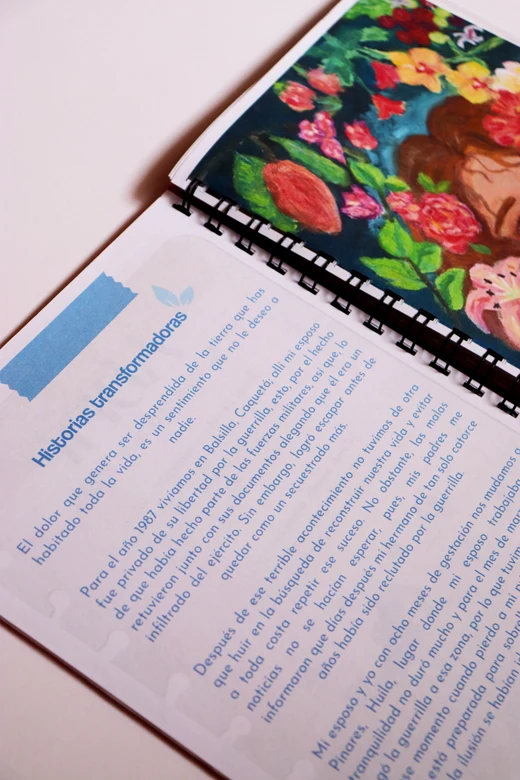 Historias transformadoras
El dolor que genera ser desprendida de la tierra que has
habitado toda la vida, es un sentimiento que no le deseo a
nadie.
Para el año 1987 vivíamos en Balsillo, Caquetá; allí mi esposo
fue privado de su libertad por la guerrilla, esto, por el hecho
de que había hecho parte de las fuerzas militares, así que, lo
retuvieron junto con sus documentos alegando que él era un
infiltrado del ejército. Sin embargo, logró escapar antes de
quedar como un secuestrado más.
Después de ese terrible acontecimiento no tuvimos de otra
que huir en la búsqueda de reconstruir nuestra vida y evitar
a toda costa repetir ese suceso. No obstante, las malas
noticias no se hacían esperar, pues, mis padres me
informaron que días después mi hermano de tan solo catorce
años había sido reclutado por la guerrilla.
Mi esposo y yo con ocho meses de gestación nos mudamos a
Pinares, Huila, lugar donde mi esposo trabajaba
tranquilidad no duró mucho y para el mes de
la guerrilla a esa zona, por lo que
momento cuando pierdo a mi
preparada para
ilusión se habían